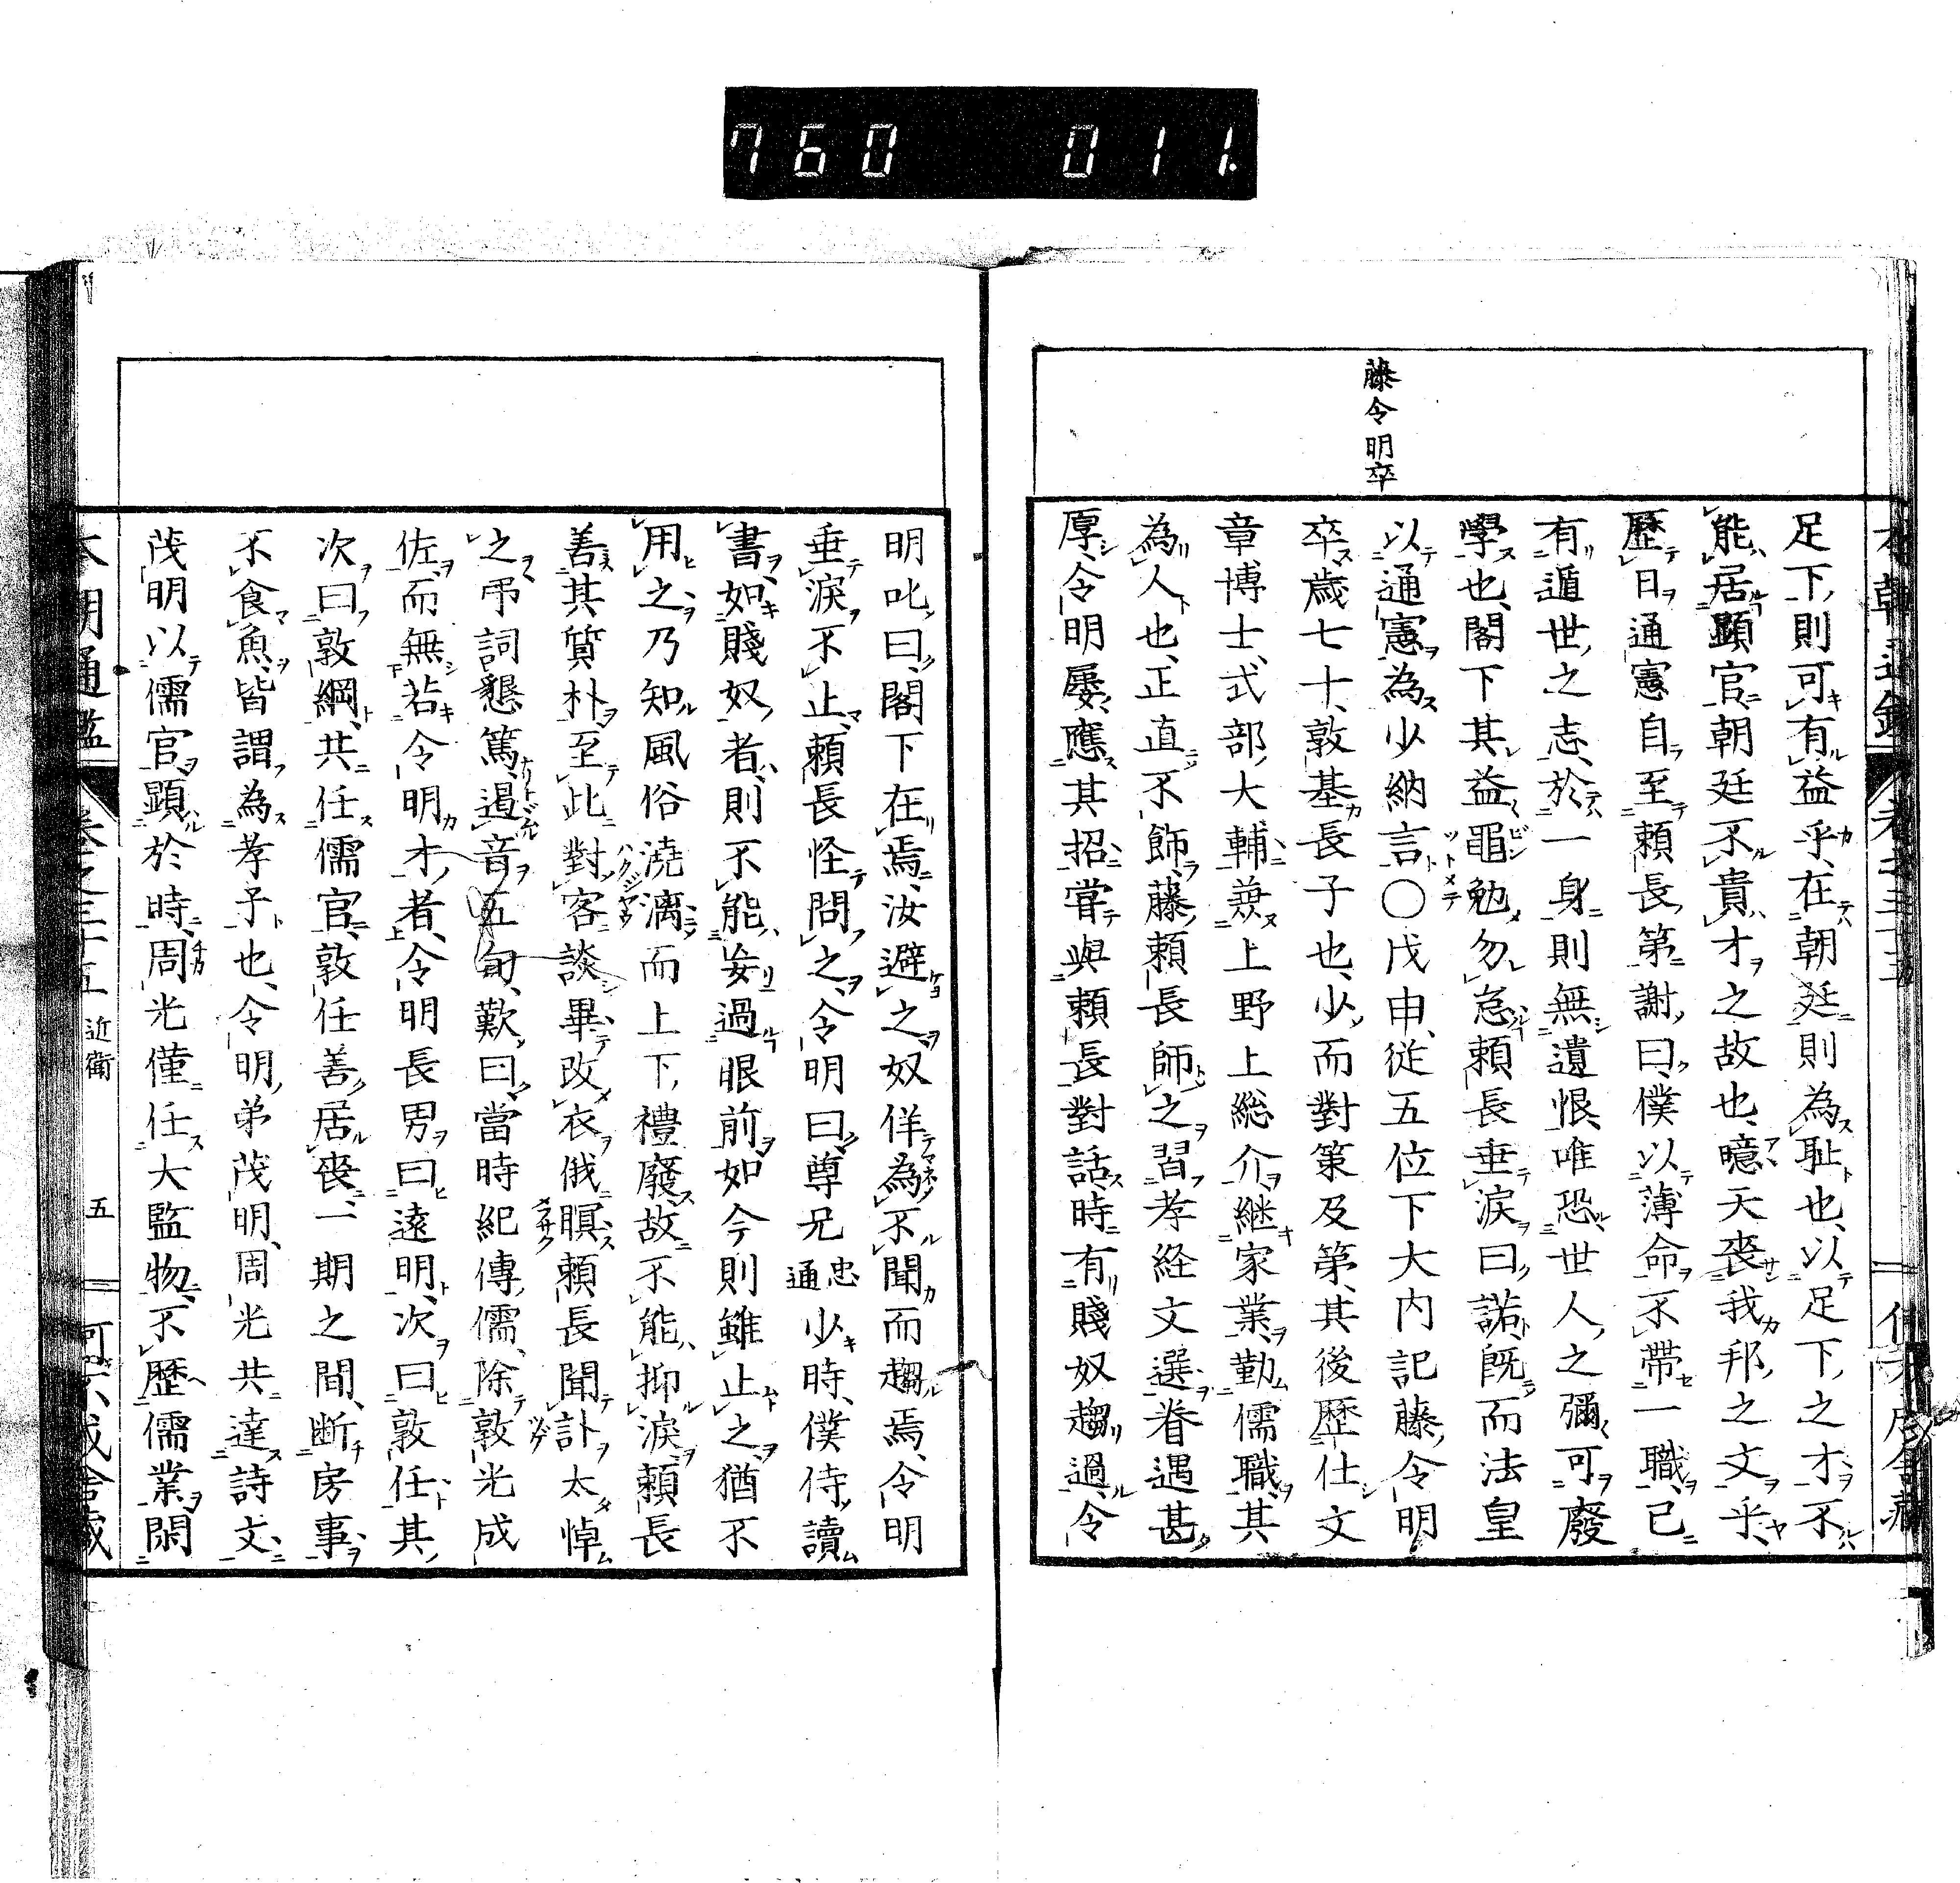 760 011.
藤令明卒
足下則可有益乎在朝廷則為恥也以足下之才不
能居顯官朝廷不貴才之故也噫天喪我邦之文乎
歷日通憲自至賴長第謝曰僕以薄命不帶一職已
有遁世之志於一身則無遺恨唯恐世人之彌可廢
學也閣下其益黽勉勿怠賴長垂淚曰諾既而法皇
以通憲為少納言〇戊申從五位下大内記藤令明
卒歲七十敦基長子也少而對策及第其後歷仕文
章博士式部大輔兼上野上総介継家業勤儒職其
為人也正直不飾藤賴長師之習孝経文選眷遇甚
厚令明屢應其招嘗與賴長對話時有賤奴趨過令
明叱曰閣下在焉汝避之奴佯為不聞而趨焉令明
垂淚不止賴長怪問之令明曰尊兄忠通少時僕侍讀
書如賤奴者則不能妄過眼前如今則雖止之猶不
用之乃知風俗澆漓而上下禮廢故不能抑淚賴長
善其質朴至此對客談畢改衣俄瞑賴長聞訃太悼
之弔詞懇篤遏音五旬歎曰當時紀傳儒除敦光成
佐而無若令明才者令明長男曰遠明次曰敦任其
次曰敦綱共任儒官敦任善居喪一期之間断房事
不食魚皆謂為孝子也令明弟茂明周光共達詩文
茂明以儒官顯於時周光僅任大監物不歷儒業閑
本朝通鑑 卷之三十五 近衛 五